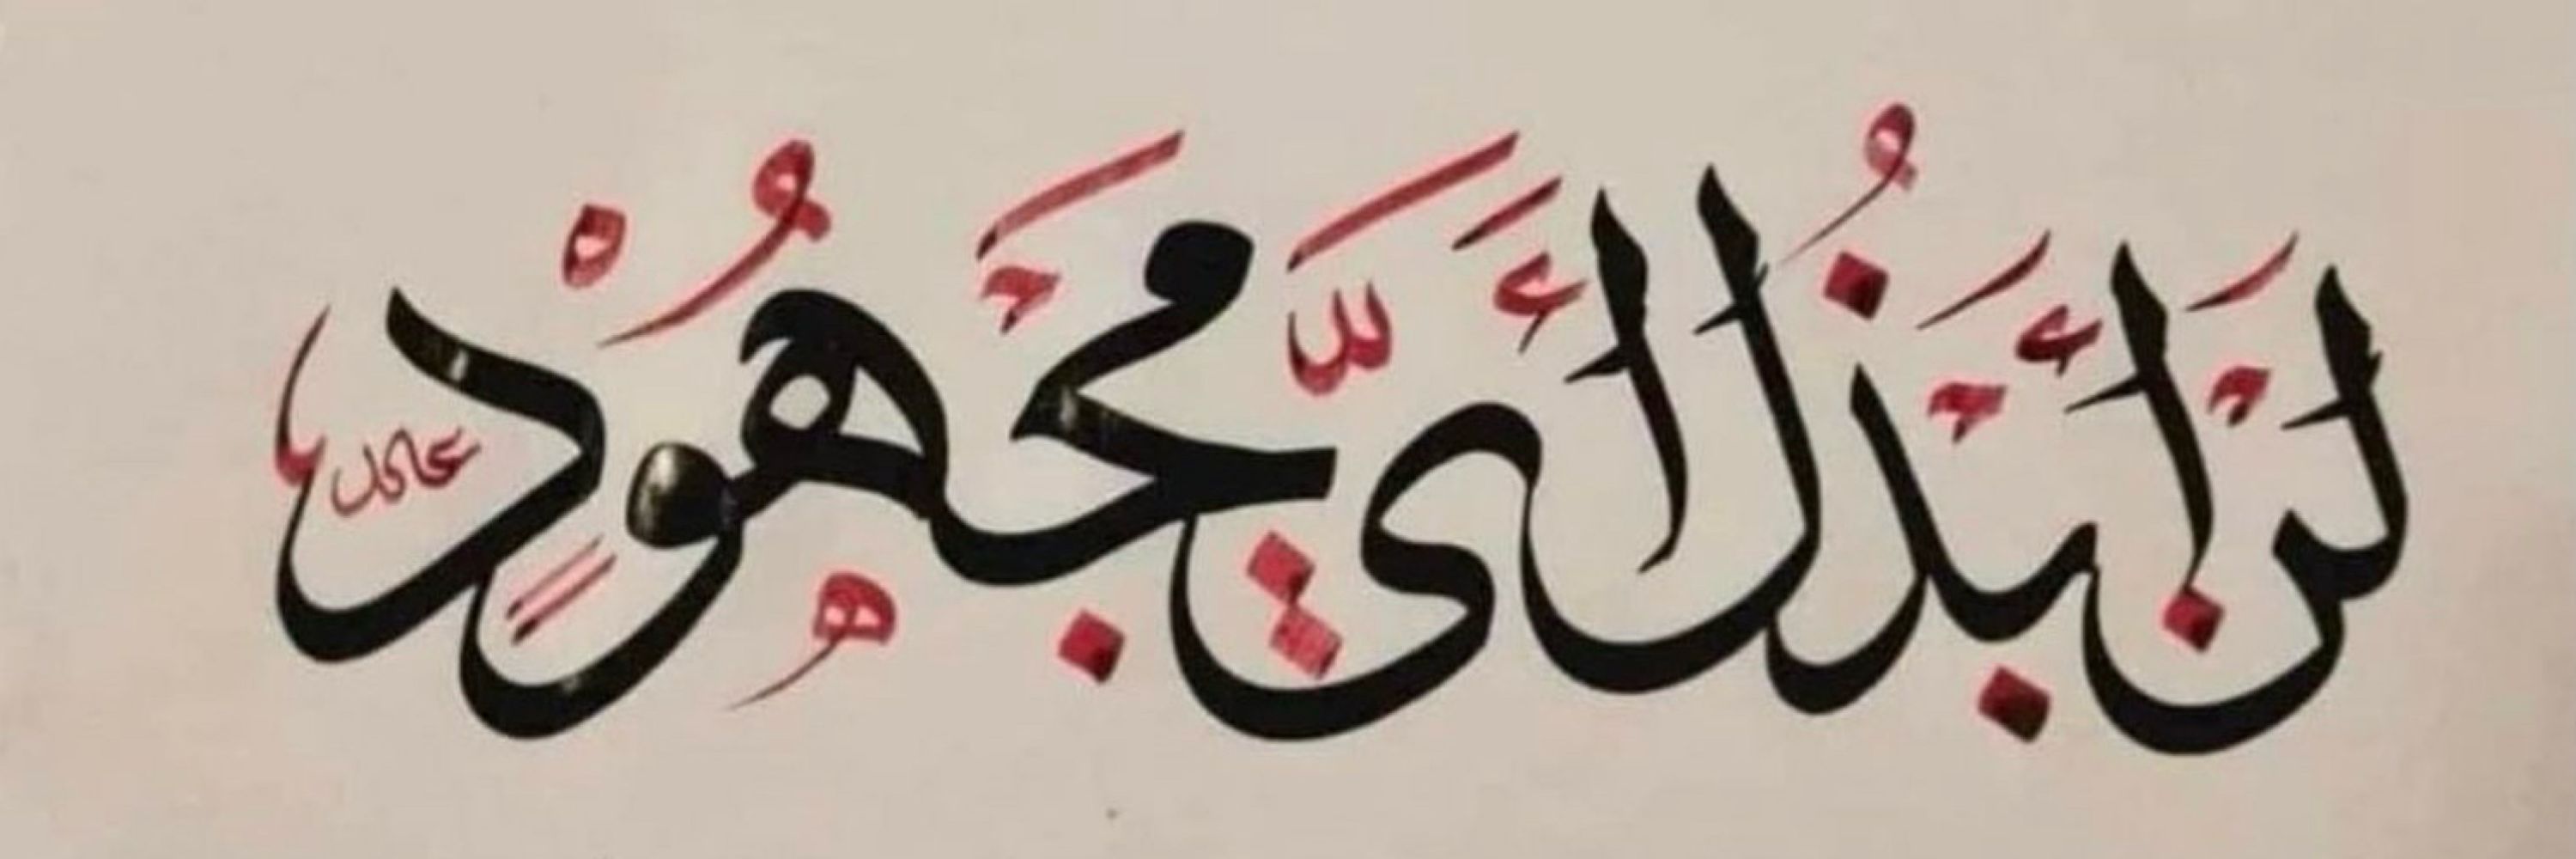 لَنْ أَبْذُلَ أَيَّ مَجْهُودٍ